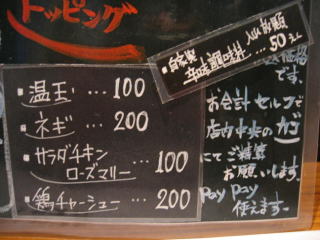 トッピング
・温玉 … 100
・ネギ … 200
・サラダチキン
ローズマリー … 100
・鶏チャーシュー … 200
自家製
… 50
価格
です。
お会計セルフで
店内中央のカゴ
にてご精算
お願いします。
PayPay
使えます。